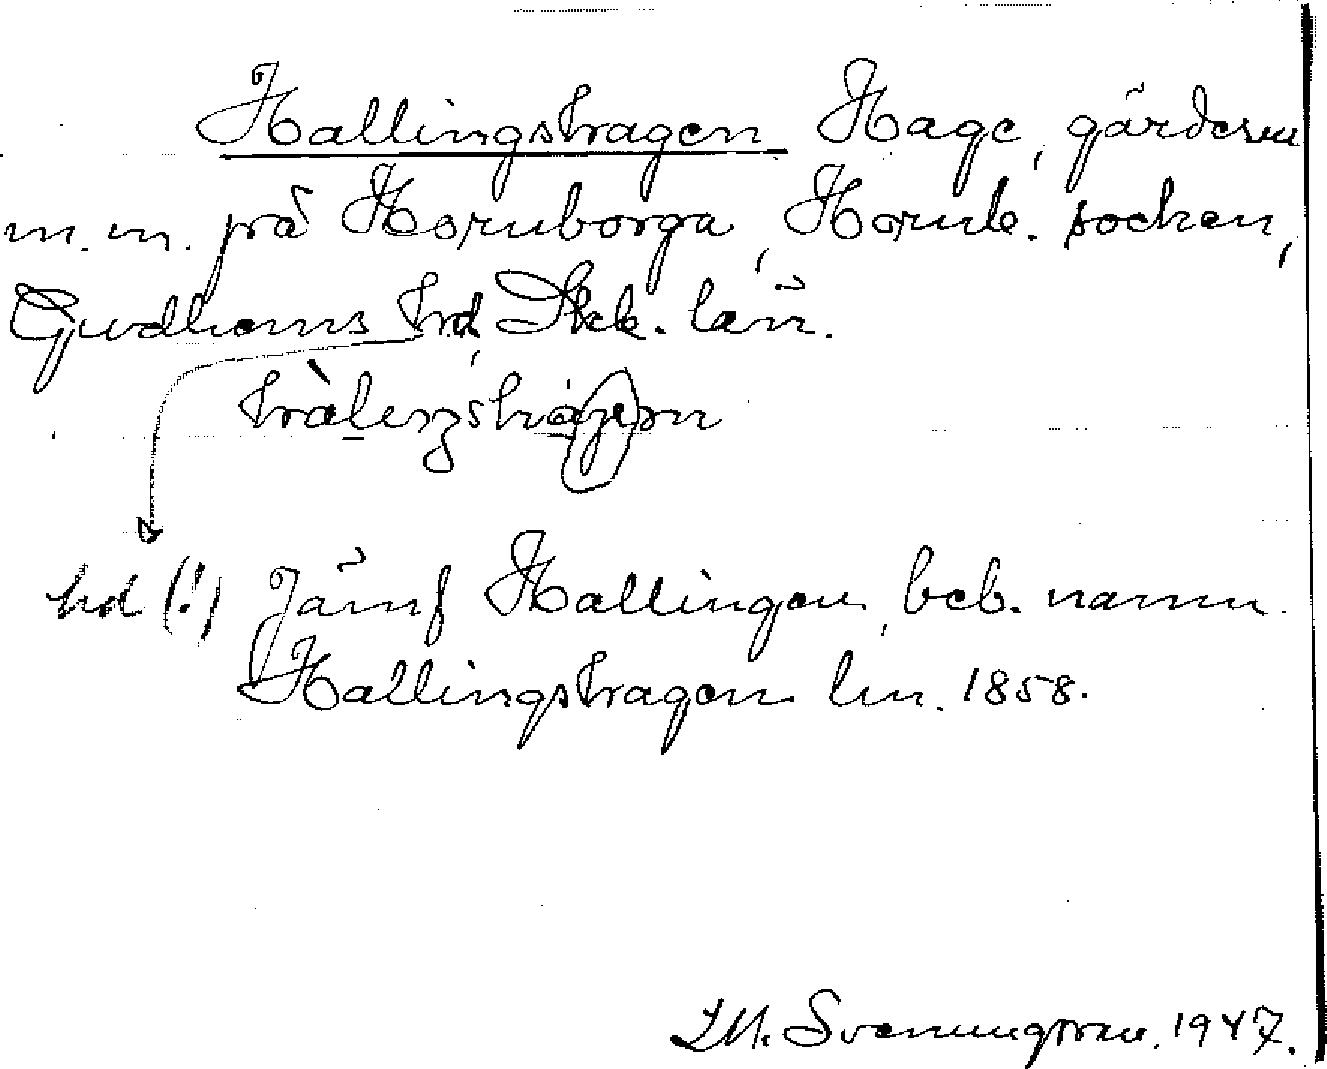 Hallingshagen Hage, gärdesm
m.m. på Hornborga, Hornb. socken,
Gudhems hrd, Skb. län.
hàleŋshagen
hd (!) Jämf Hallingen, beb. namn.
Hallingshagen lm. 1858.
I. M. Svenungsson. 1947.